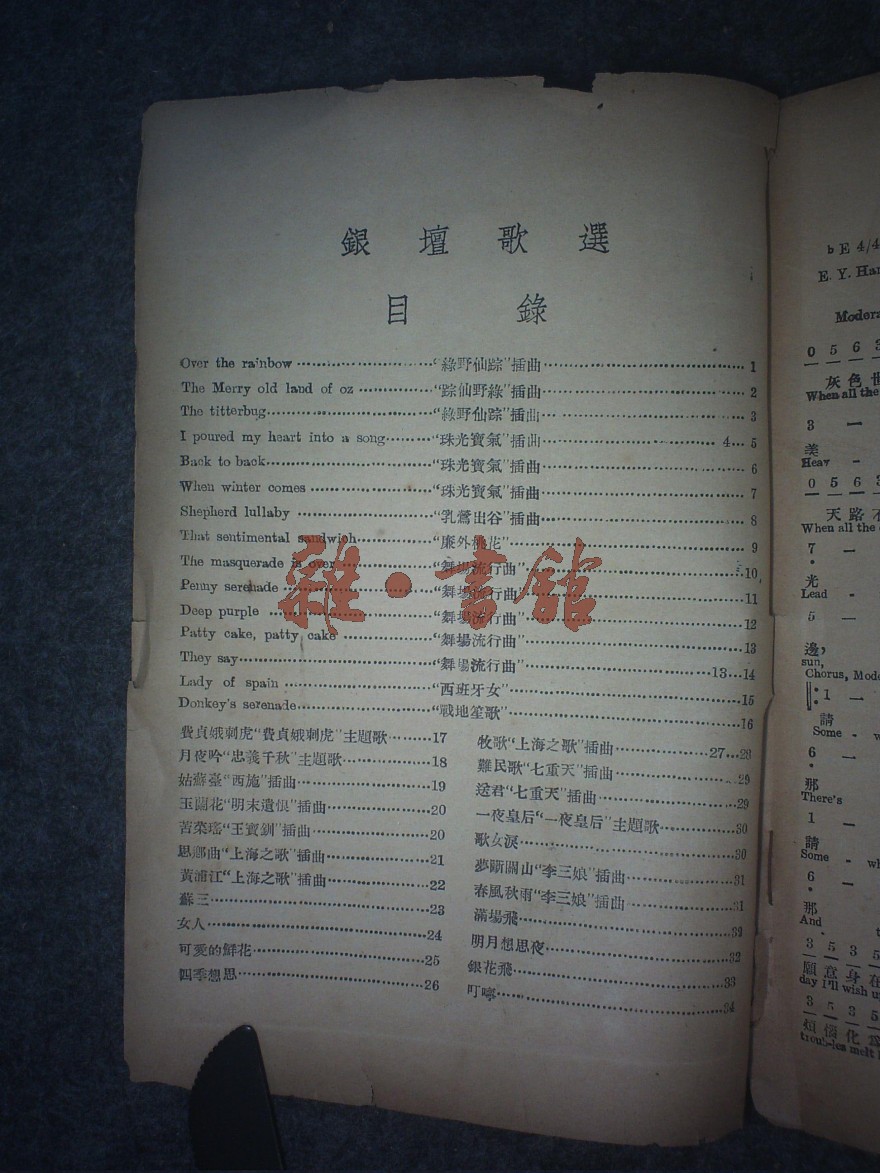 銀壇歌選
目錄
Over the rainbow ··············· “綠野仙踪”插曲 ··············· 1
The Merry old land of oz ··············· “踪仙野綠”插曲 ··············· 2
The titterbug ··············· “綠野仙踪”插曲 ··············· 3
I poured my heart into a song ··············· “珠光寶氣”插曲 ··············· 4…5
Back to back ··············· “珠光寶氣”插曲 ··············· 6
When winter comes ··············· “珠光寶氣”插曲 ··············· 7
Shepherd lullaby ··············· “乳鶯出谷”插曲 ··············· 8
That sentimental sandwich ··············· “廉外 花” ··············· 9
The masquerade is over ··············· “舞場流行曲” ··············· 10
Penny serenade ··············· “舞場流行曲” ··············· 11
Deep purple ··············· “舞場流行曲” ··············· 12
Patty cake, patty cake ··············· “舞場流行曲” ··············· 13
They say ··············· “舞場流行曲” ··············· 13…14
Lady of spain ··············· “西班牙女” ··············· 15
Donkey's serenade ··············· “戰地笙歌” ··············· 16
費貞娥刺虎“費貞娥刺虎”主題歌 ········ 17
月夜吟“忠義千秋”主題歌 ········ 18
姑蘇臺“西施”插曲 ········ 19
玉蘭花“明末遺恨”插曲 ········ 20
苦菜瑤“王寶釧”插曲 ········ 20
思鄉曲“上海之歌”插曲 ········ 21
黃浦江“上海之歌”插曲 ········ 22
蘇三 ········ 23
女人 ········ 24
可愛的鮮花 ········ 25
四季想思 ········ 26
牧歌“上海之歌”插曲 ········ 27…28
難民歌“七重天”插曲 ········ 29
送君“七重天”插曲 ········ 29
一夜皇后“一夜皇后”主題歌 ········ 30
歌女淚 ········ 30
夢斷關山“李三娘”插曲 ········ 31
春風秋雨“李三娘”插曲 ········ 31
滿場飛 ········ 32
明月想思夜 ········ 32
銀花飛 ········ 33
叮嚀 ········ 34
雜·書館
bE 4/4
E. Y. Har
Modera
0 5 6 3
灰色世
When all the
3 —
美
Heav -
0 5 6 3
天路不
When all the
7 —
光
Lead -
5 —
邊，
sun,
Chorus, Mode
1 —
請
Some - w
6 —
那
There's
1 —
請
Some - wh
6 —
那
And t
3 5 3 5
願意身在
day I'll wish u
3 5 3 5
煩惱化爲
troub-les melt l